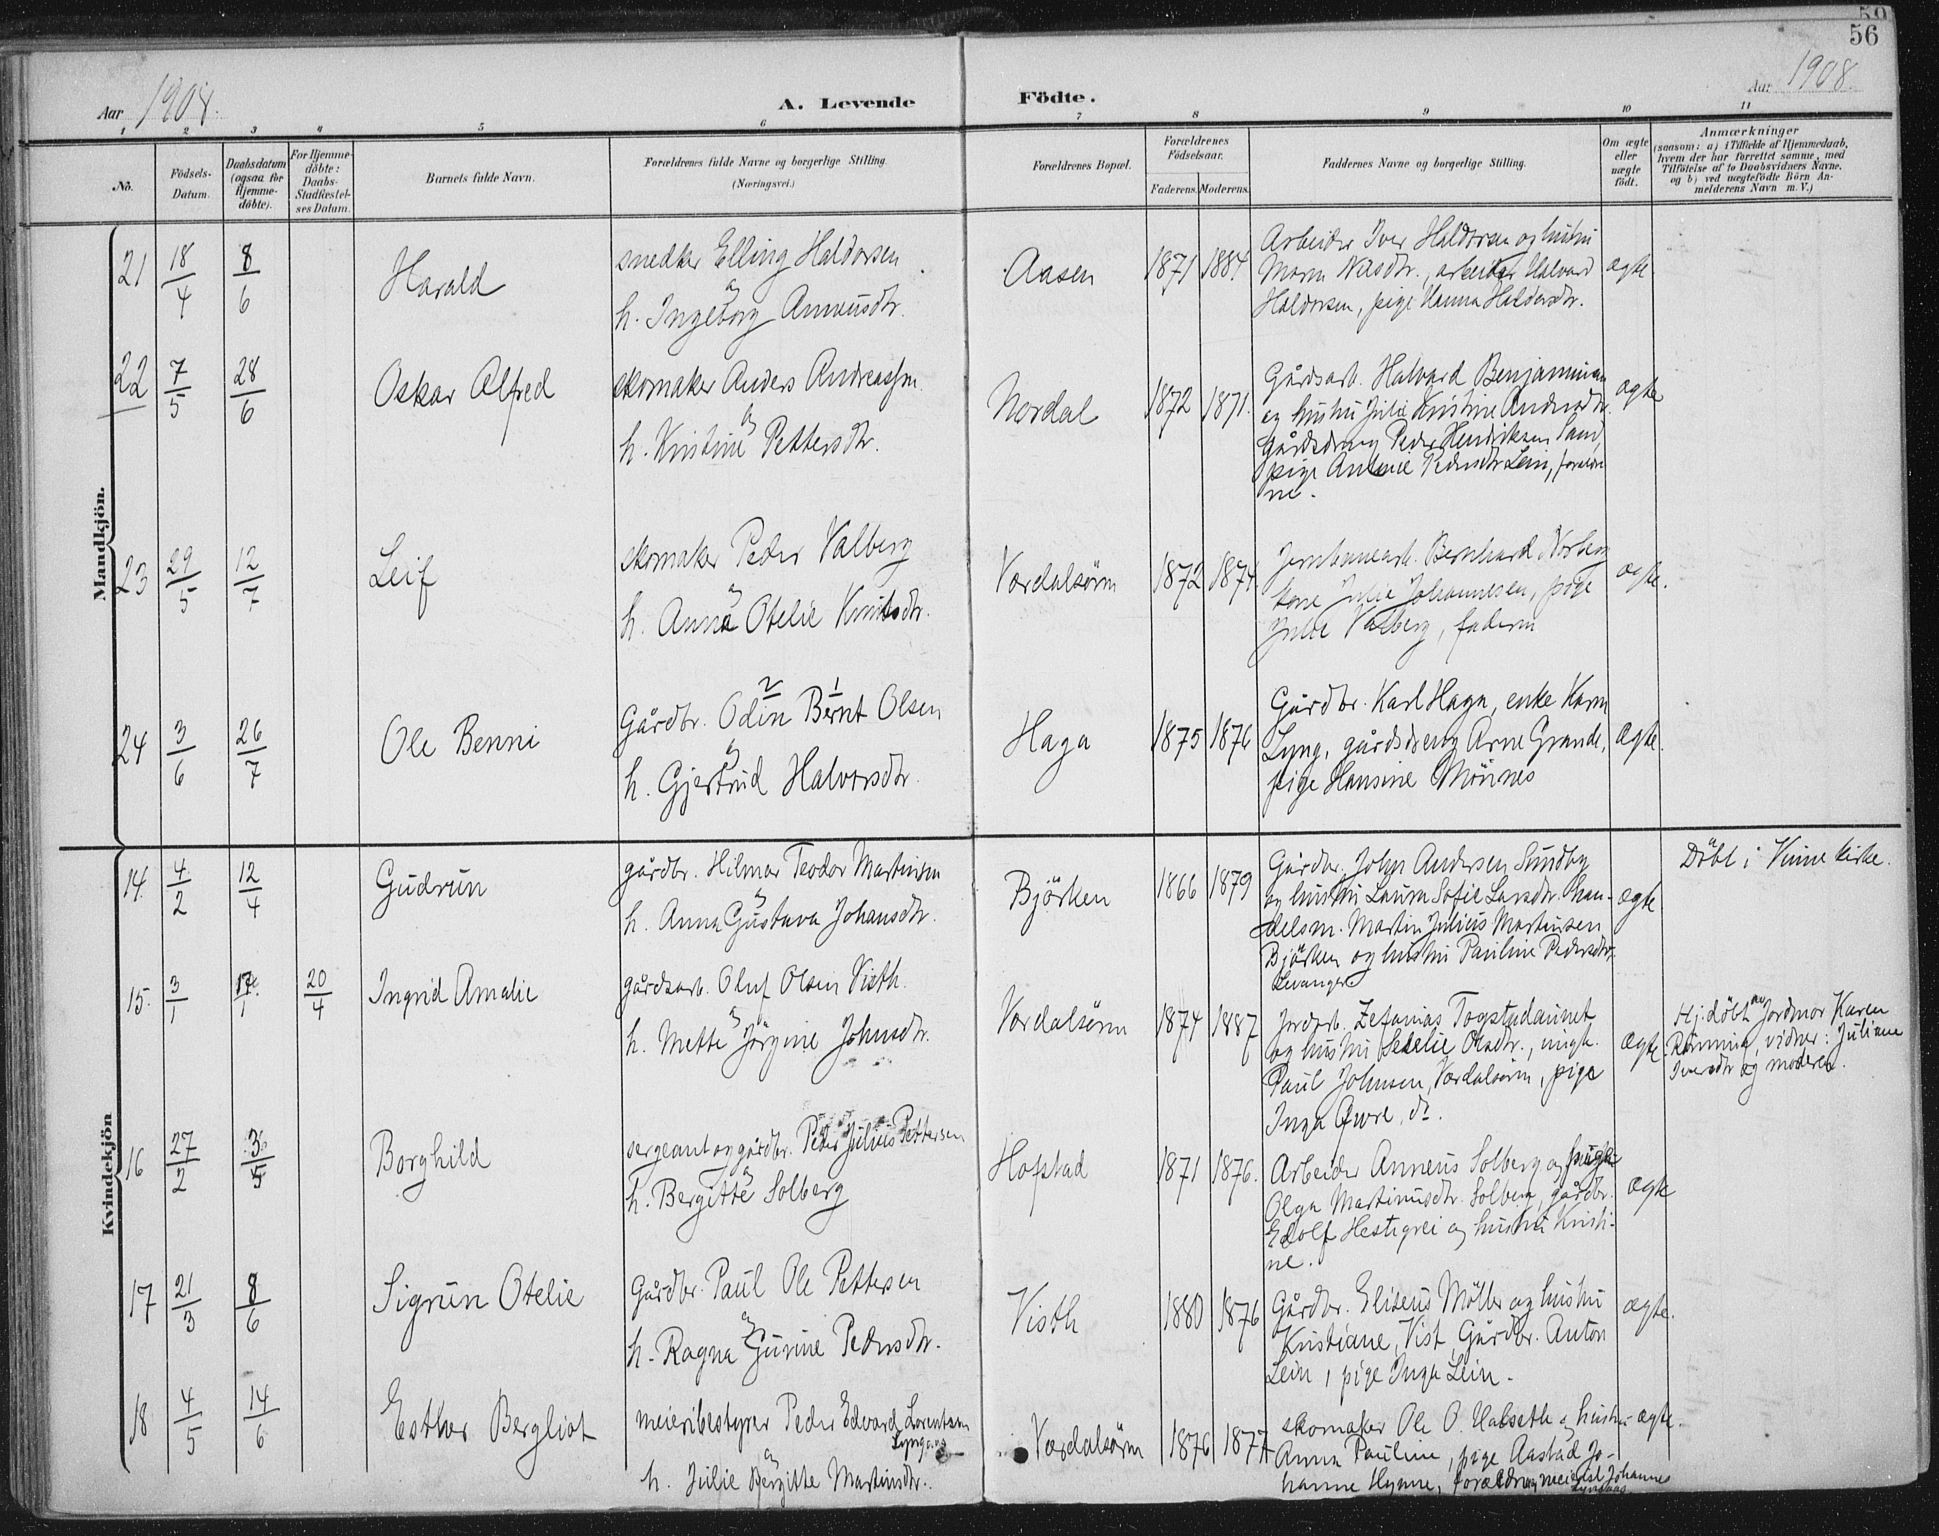 59
56
Aar 1908.
A. Levende Födte.
Aar 1908.
1 2 3 4 5 6 7 8 9 10 11
No.
Födsels-Datum.
Daabsdatum (ogsaa for Hjemme-döbte).
For Hjemme-döbte: Daabs-Stadfæstel-ses Datum.
Barnets fulde Navn.
Forældrenes fulde Navne og borgerlige Stilling. (Næringsvei.)
Forældrenes Bopæl.
Forældrenes Födselsaar.
Faderens. Moderens.
Faddernes Navne og borgerlige Stilling.
Om ægte eller uægte födt.
Anmærkninger
(saasom: a) i Tilfælde af Hjemmedaab,
hvem der har forrettet samme, med
Tilföielse af to Daabsvidners Navne,
og b) ved uægtefödte Börn An-
melderens Navn m. V.)
Mandkjön.
21 18/4 8/6 Harald
snedker Elling Haldorsen
og
h. Ingeborg Anneusdtr.
Aasen 1871 1884
Arbeider Iver Haldorsen og hustru
Maren Nilsdtr., arbeider Halvard
Haldorsen, pige Hanna Haldorsdtr.
ægte
22 7/5 28/6 Oskar Alfred
skomaker Anders Andreassen
og
h. Kristine Pettersdtr.
Nordal 1872 1871.
Gårdsarb. Halvard Benjaminsen
og hustru Julie Kristine Andersdtr.
Gårdsdreng Peder Henriksen Sand,
pige Pedersdtr Lein, forældre
ne.
ægte
23 29/5 12/7 Leif
skomaker Peder Valberg
og
h. Anna Otelie Knutsdtr.
Værdalsören 1872 1874
Jernbanearb. Bernhard Norberg
kone Julie Johannesen, pige
Valberg, faderen
ægte.
24 3/6 26/7 Ole Benni
2 1
Gårdbr. Odin Bernt Olsen
og
h. Gjertrud Halvorsdtr.
Haga 1875 1876
Gårdbr. Karl Haga, enke Karen
Lyng, gårdsdreng Arne Grande,
pige Hansine Mönnes
ægte.
Kvindekjön
14. 4/2 12/4 Gudrun
gårdbr. Hilmar Teodor Martinsen
og
h. Anna Gustava Johansdtr.
Björken 1866 1879
Gårdbr. John Andersen Sundby
og hustru Laura Sofie Larsdtr. han-
delsm. Martin Julius Martinsen
Björken og hustru Pauline Pedersdtr,
Levanger
ægte
Döbt i Vinne kirke.
15. 3/1 20/4 Ingrid Amalie
gårdsarb. Oluf Olsen Visth.
og
h. Mette Jörgine Johnsdtr.
Værdalsören 1874 1887
Jordarb. Zefanias Togstadaunet
og hustru Olsdtr., ungk.
Paul Johnsen, Værdalsören, pige
Inga Övre, do.
ægte
Hj. döbt av Jordmor Karen
Rönning, vidner: Juliane
Iversdtr og moderen.
16 27/2 3/5 Borghild
sergeant og gårdbr. Peder Julius Pettersen
og
h. Bergitte Solberg
Hofstad 1871 1876.
Arbeider Anneus Solberg og
Olga Martinusdtr. Solberg, gårdbr.
Edolf Hestegrei og hustru Kristi-
ne.
ægte
17 21/3 8/6 Sigrun Otelie
Gårdbr. Paul Ole Pettersen
og
h. Ragna Gurine Pedersdtr.
Visth 1880 1876
Gårdbr. Eliseus Möller og hustru
Kristiane, Vist, Gårdbr. Anton
Lein, pige Inga Lein.
ægte.
18 4/5 14/6 Esther Bergliot
meieribestyrer Peder Edvard Lorentsen
Lyngaas
og
h. Julie Bergitte Martinsdtr.
Værdalsören 1876 1877
skomaker Ole O. Halseth og hustru
Anna Pauline, pige Aastad Jo-
hanne Hynne, forældr og meierist Johannes
Lyngaas
ægte.